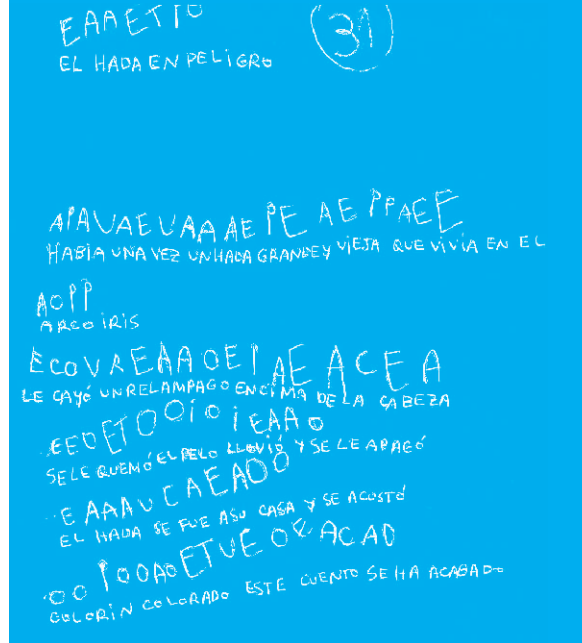 EAAETIO
31
EL HADA EN PELIGRO
APAUAEUAAAEPE AE PPAEE
HABIA UNA VEZ UN HADA GRANDE Y VIEJA QUE VIVIA EN EL
AOPP
ARCO IRIS
ECOVAEAAOEI AE ACEA
LE CAYÓ UN RELAMPAGO ENCIMA DE LA CABEZA
EEOETOOiOiEAAO
SE LE QUEMÓ EL PELO LLOVIÓ Y SE LE APAGÓ
EAAAUCAEAOO
EL HADA SE FUE A SU CASA Y SE ACOSTÓ
OO IOOAOETUEO ACAO
COLORÍN COLORADO ESTE CUENTO SE HA ACABADO